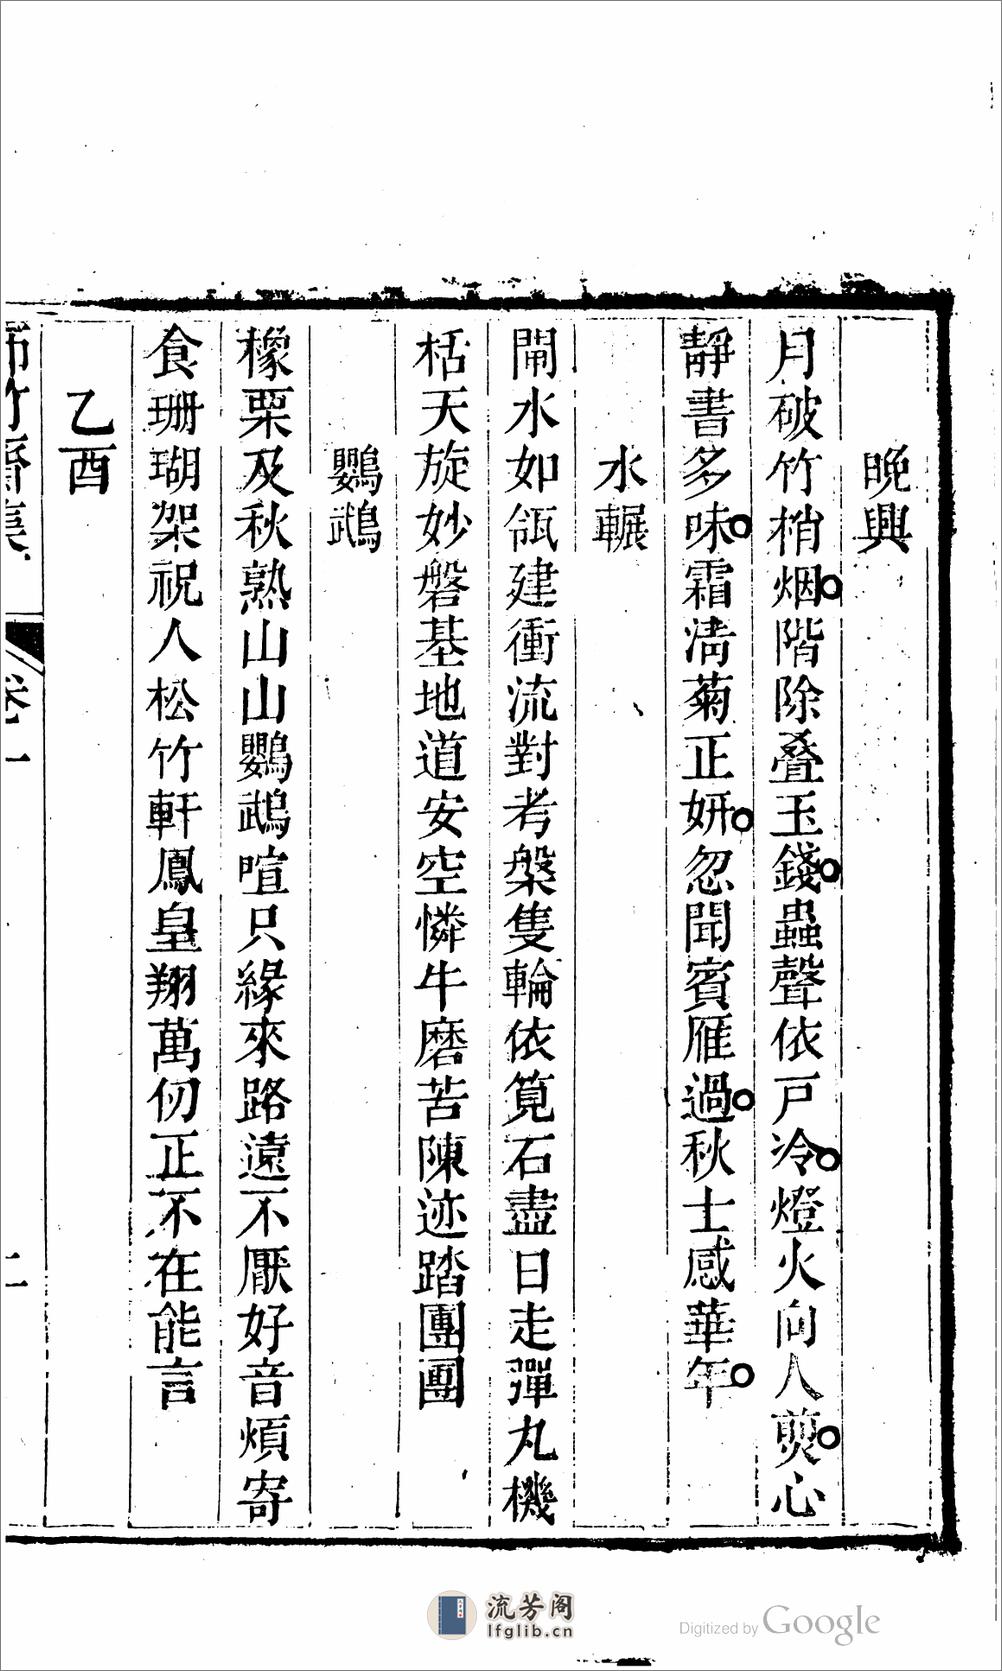 晚興
月破竹梢烟階除叠玉錢蟲聲依戸冷燈火向人煎心
靜書多味霜淸菊正妍忽聞賓雁過秋士感華年
水輾
閘水如瓴建衝流對考槃隻輪依筧石盡日走彈丸機
栝天旋妙磐基地道安空憐牛磨苦陳迹踏團團
鸚鵡
橡栗及秋熟山山鸚鵡喧只緣來路遠不厭好音煩寄
食珊瑚架祝人松竹軒鳳皇翔萬仞正不在能言
乙酉
竹齋集
卷一
二
流芳阁
lfglib.cn
Digitized by Google